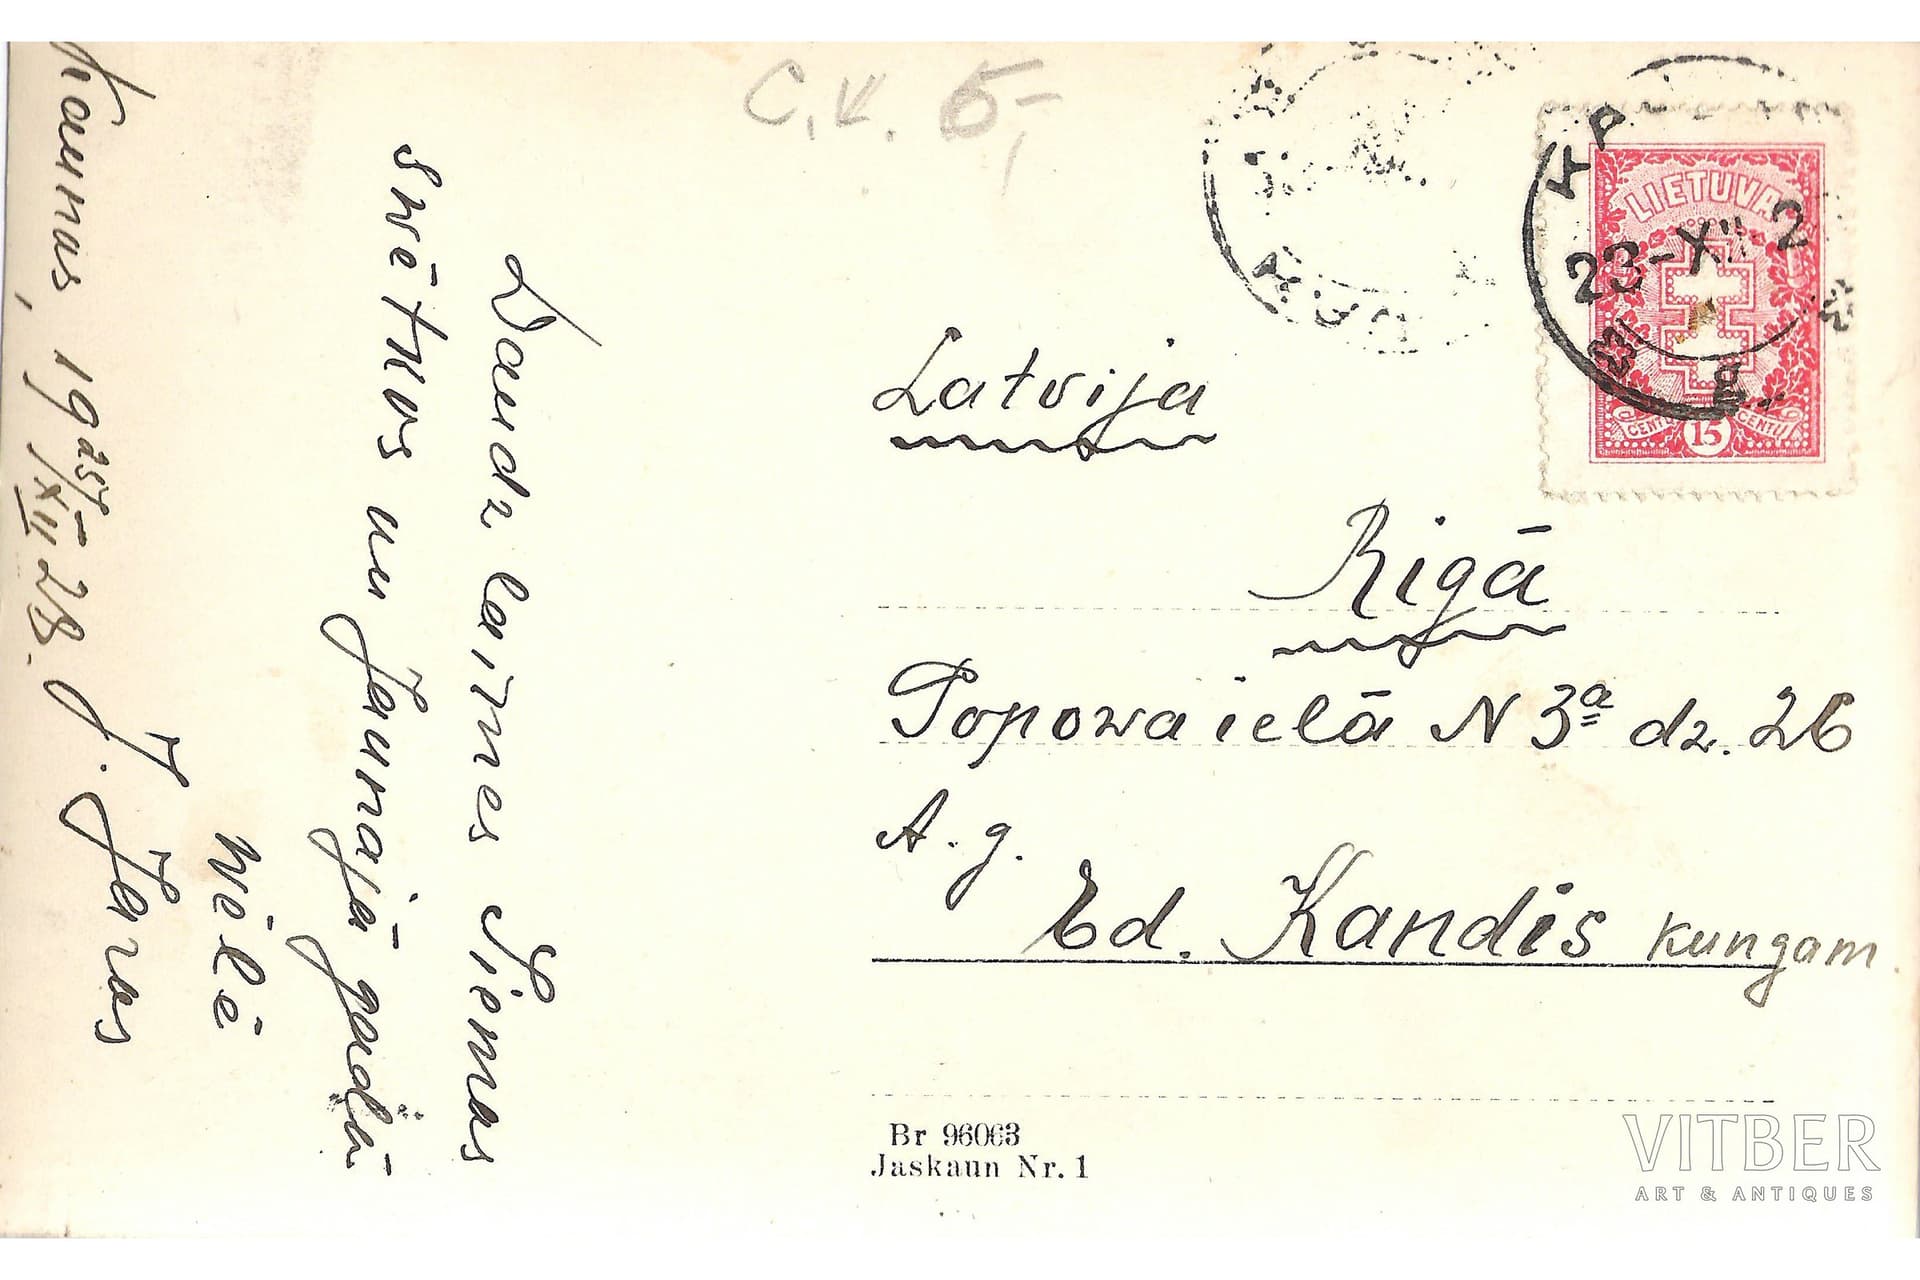 C.V. 5,-
LIETUVA
23-XII 2
CENTŲ 15 CENTŲ
Daudz laimes Siemas
swētkos un Jaunajā gadā
vēlē
J. Jaras
Kaunas, 19 25/XII 28.
Latvija
Rigā
Popowa ielā N 3a dz. 26
A. g.
Ed. Kandis kungam
Br 96063
Jaskaun Nr. 1
VITBER
ART & ANTIQUES